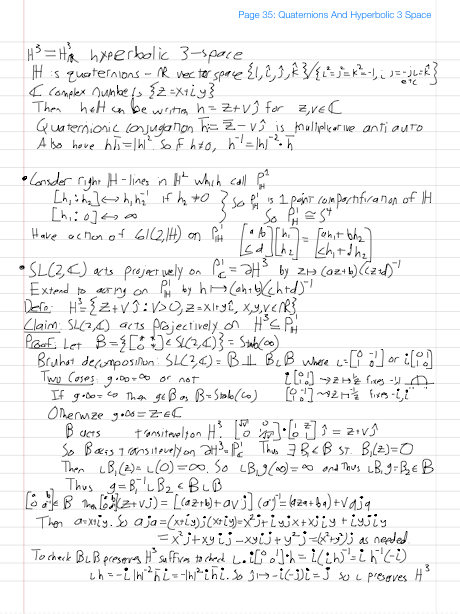 Page 35: Quaternions And Hyperbolic 3 Space
H³ = H³_ℝ hyperbolic 3-space
ℍ is quaternions - ℝ vector space {1, i, j, k}/(i²=j²=k²=-1, ij=-ji=k etc
ℂ complex numbers {z=x+iy}
Then h∈ℍ can be written h=z+vj for z,v∈ℂ
Quaternionic conjugation h̄ = z̄ - vj is multiplicative anti auto
Also have hh̄=|h|² so if h≠0, h⁻¹=|h|⁻²·h̄
• Consider right ℍ-lines in ℍ² which call P¹_ℍ
[h₁:h₂]↔h₁h₂⁻¹ if h₂≠0 } So P¹_ℍ is 1 point compactification of ℍ
[h₁:0]↔∞ So P¹_ℍ≅S⁴
Have action of Gl(2,ℍ) on P¹_ℍ [a b c d][h₁ h₂]=[ah₁+bh₂ ch₁+dh₂]
• SL(2,ℂ) acts projectively on P¹_ℂ=∂H³ by z↦(az+b)(cz+d)⁻¹
Extend to acting on P¹_ℍ by h↦(ah+b)(ch+d)⁻¹
Defn: H³={z+vj: v>0, z=x+yi, x,y,v∈ℝ}
Claim: SL(2,ℂ) acts projectively on H³⊆P¹_ℍ
Proof: Let B={[* * 0 *]∈SL(2,ℂ)}=Stab(∞)
Bruhat decomposition: SL(2,ℂ)=B ⊔ BιB where ι=[0 -1 1 0] or i[0 1 1 0]
Two Cases: g·∞=∞ or not
If g·∞=∞ then g∈B as B=Stab(∞)
Otherwize g·∞=z∈ℂ
B acts transitively on H³.
So B acts transitively on ∂H³=P¹_ℂ Thus ∃ B₁∈B st. B₁(z)=0
Then ιB₁(z)=ι(0)=∞. So ιB₁g(∞)=∞ and thus ιB₁g=B₂∈B
Thus g=B₁⁻¹ιB₂∈BιB
[a b 0 a⁻¹]∈B then [a b 0 a⁻¹](z+vj)=[(az+b)+avj](a⁻¹)⁻¹=(aza+ba)+vaja
Then a=x+iy. So aja=(x+iy)j(x+iy)=x²j+iyjx+xjiy+iyjiy
=x²j+xyij-xyij+y²j=(x²+y²)j as needed
To check BιB preserves H³ suffices to check ι. i[0 1 1 0]·h=i(ih)⁻¹=ih⁻¹(-i)
ιh=-i|h|⁻²h̄i=-|h|⁻²ih̄i. So j↦-i(-j)i=j so ι preserves H³